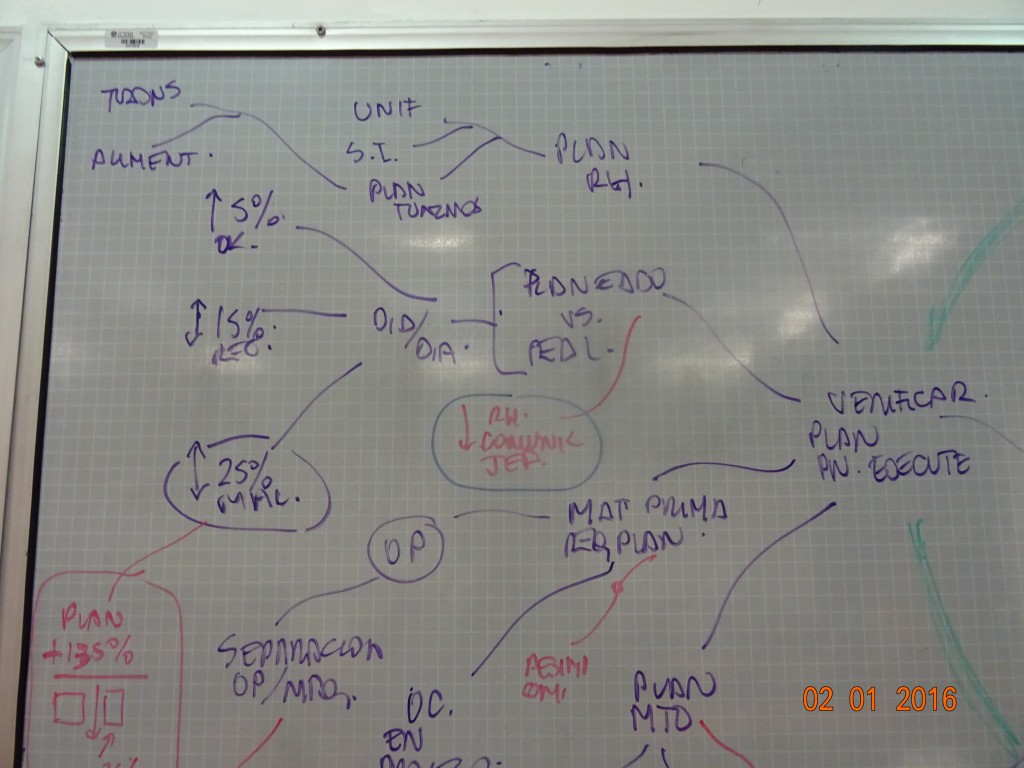 UNIF
AUMENT.
S.I.
PLAN
RH.
PLAN
TURNOS
↑ 5%
OK.
PLANEADO
VS.
↕ 15%
REC.
DIA/
DIA.
PEDI.
VERIFICAR.
PLAN
PN. EJECUTE
↓ RH.
COMUNIC
JEF.
↕ 25%
MAT PRIMA
REQ PLAN.
OP
PLAN
+135%
SEPARACION
OP/MAQ.
OC.
EN
PLAN
MTO
02 01 2016